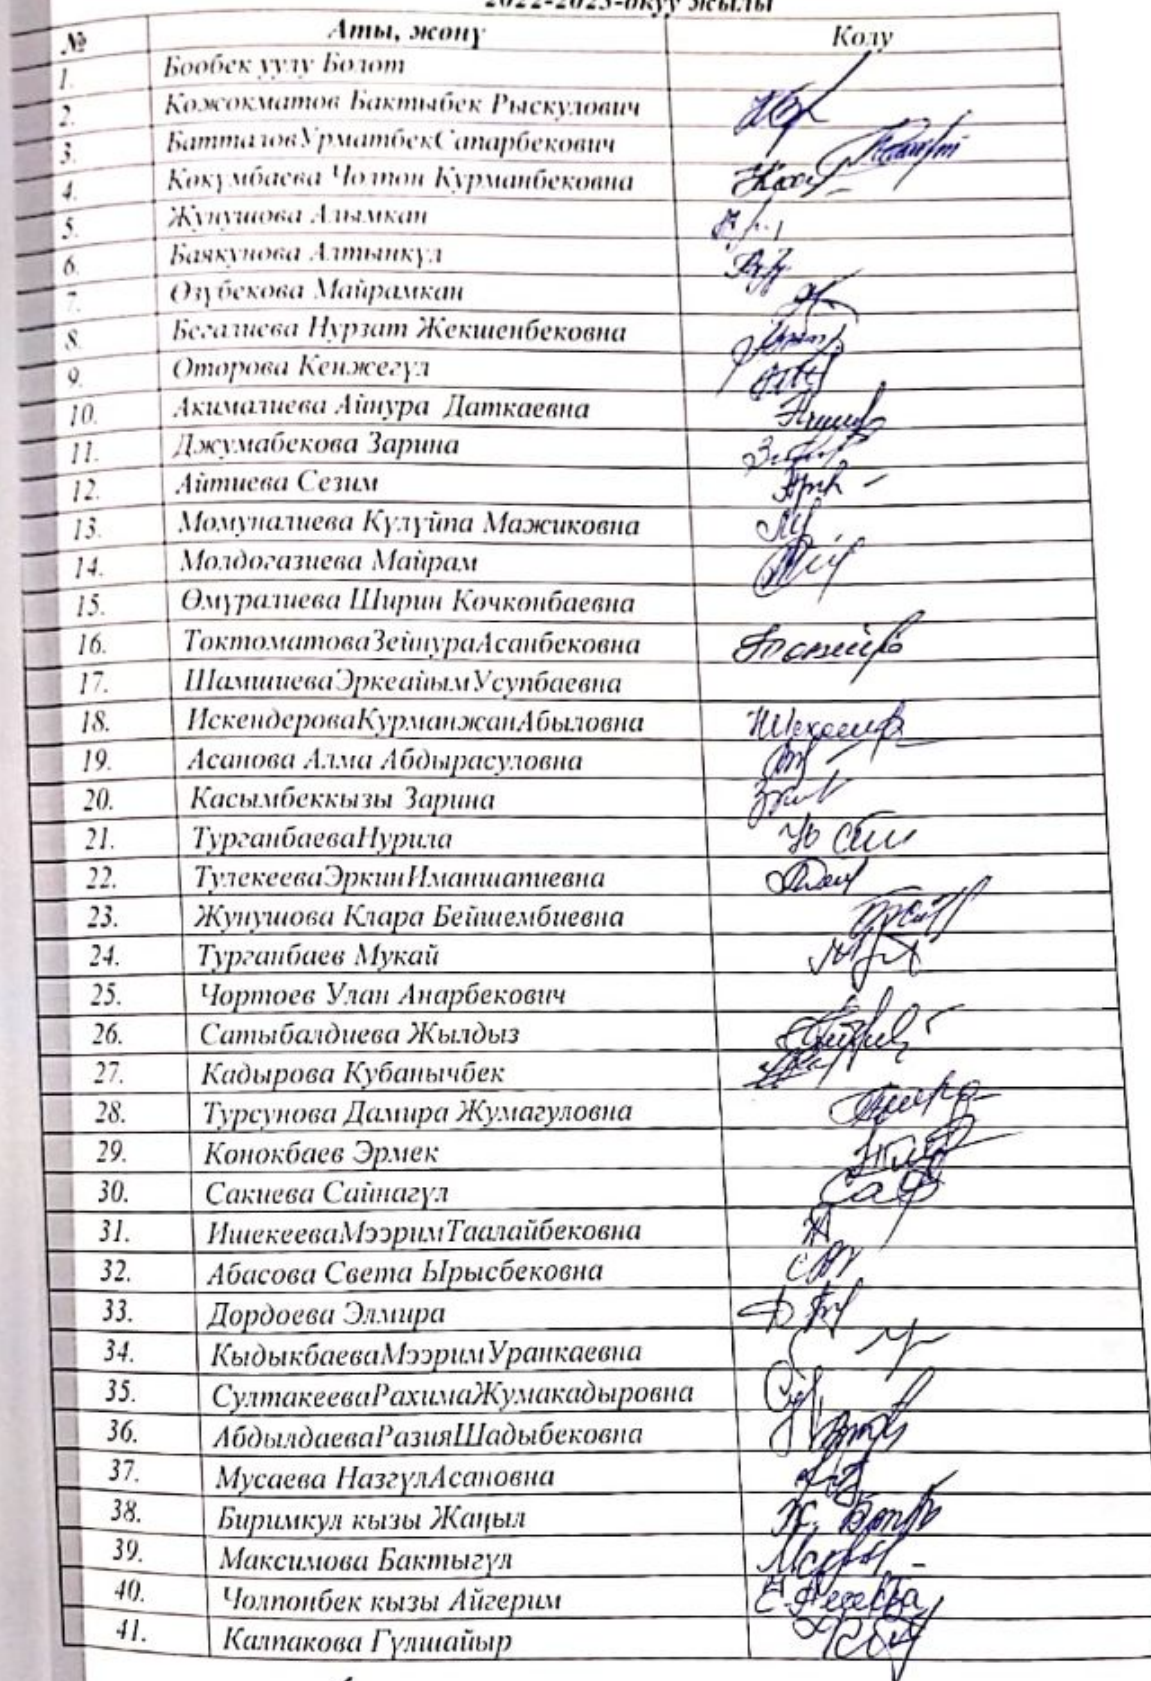 2022-2023-окуу жылы
№ Аты, жөнү Колу
1. Бообек уулу Болот
2. Кожокматов Бактыбек Рыскулович
3. БатталовУрматбекСапарбекович
4. Кокумбаева Чолпон Курманбековна
5. Жунушова Алымкан
6. Баякунова Алтынкүл
7. Өзүбекова Майрамкан
8. Бегалиева Нурзат Жекшенбековна
9. Оторова Кенжегүл
10. Акималиева Айнура Даткаевна
11. Джумабекова Зарина
12. Айтиева Сезим
13. Момуналиева Күлүйпа Мажиковна
14. Молдогазиева Майрам
15. Өмүралиева Ширин Кочконбаевна
16. ТоктоматоваЗейнураАсанбековна
17. ШамшиеваЭркеайымУсупбаевна
18. ИскендероваКурманжанАбыловна
19. Асанова Алма Абдырасуловна
20. Касымбеккызы Зарина
21. ТурганбаеваНурила
22. ТулекееваЭркинИманшапиевна
23. Жунушова Клара Бейшембиевна
24. Турганбаев Мукай
25. Чортоев Улан Анарбекович
26. Сатыбалдиева Жылдыз
27. Кадырова Кубанычбек
28. Турсунова Дамира Жумагуловна
29. Конокбаев Эрмек
30. Сакиева Сайнагүл
31. ИшекееваМээримТаалайбековна
32. Абасова Света Ырысбековна
33. Дордоева Элмира
34. КыдыкбаеваМээримУранкаевна
35. СултакееваРахимаЖумакадыровна
36. АбдылдаеваРазияШадыбековна
37. Мусаева НазгүлАсановна
38. Биримкул кызы Жаңыл
39. Максимова Бактыгүл
40. Чолпонбек кызы Айгерим
41. Калпакова Гүлшайыр